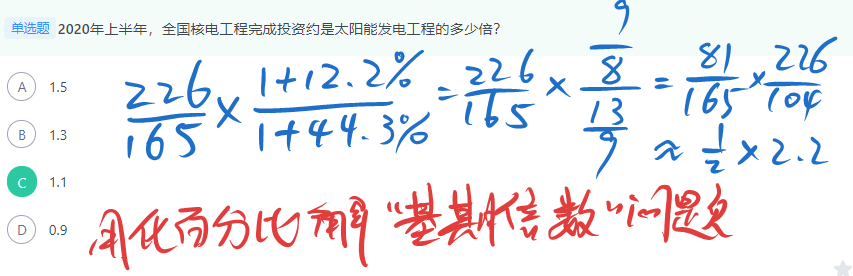 单选题 2020年上半年，全国核电工程完成投资约是太阳能发电工程的多少倍？
A 1.5
B 1.3
C 1.1
D 0.9
226/165 × (1+12.2%)/(1+44.3%) = 226/165 × (9/8)/(13/9) = 81/165 × 226/104
≈ 1/2 × 2.2
用化百分比解“基期倍数”问题